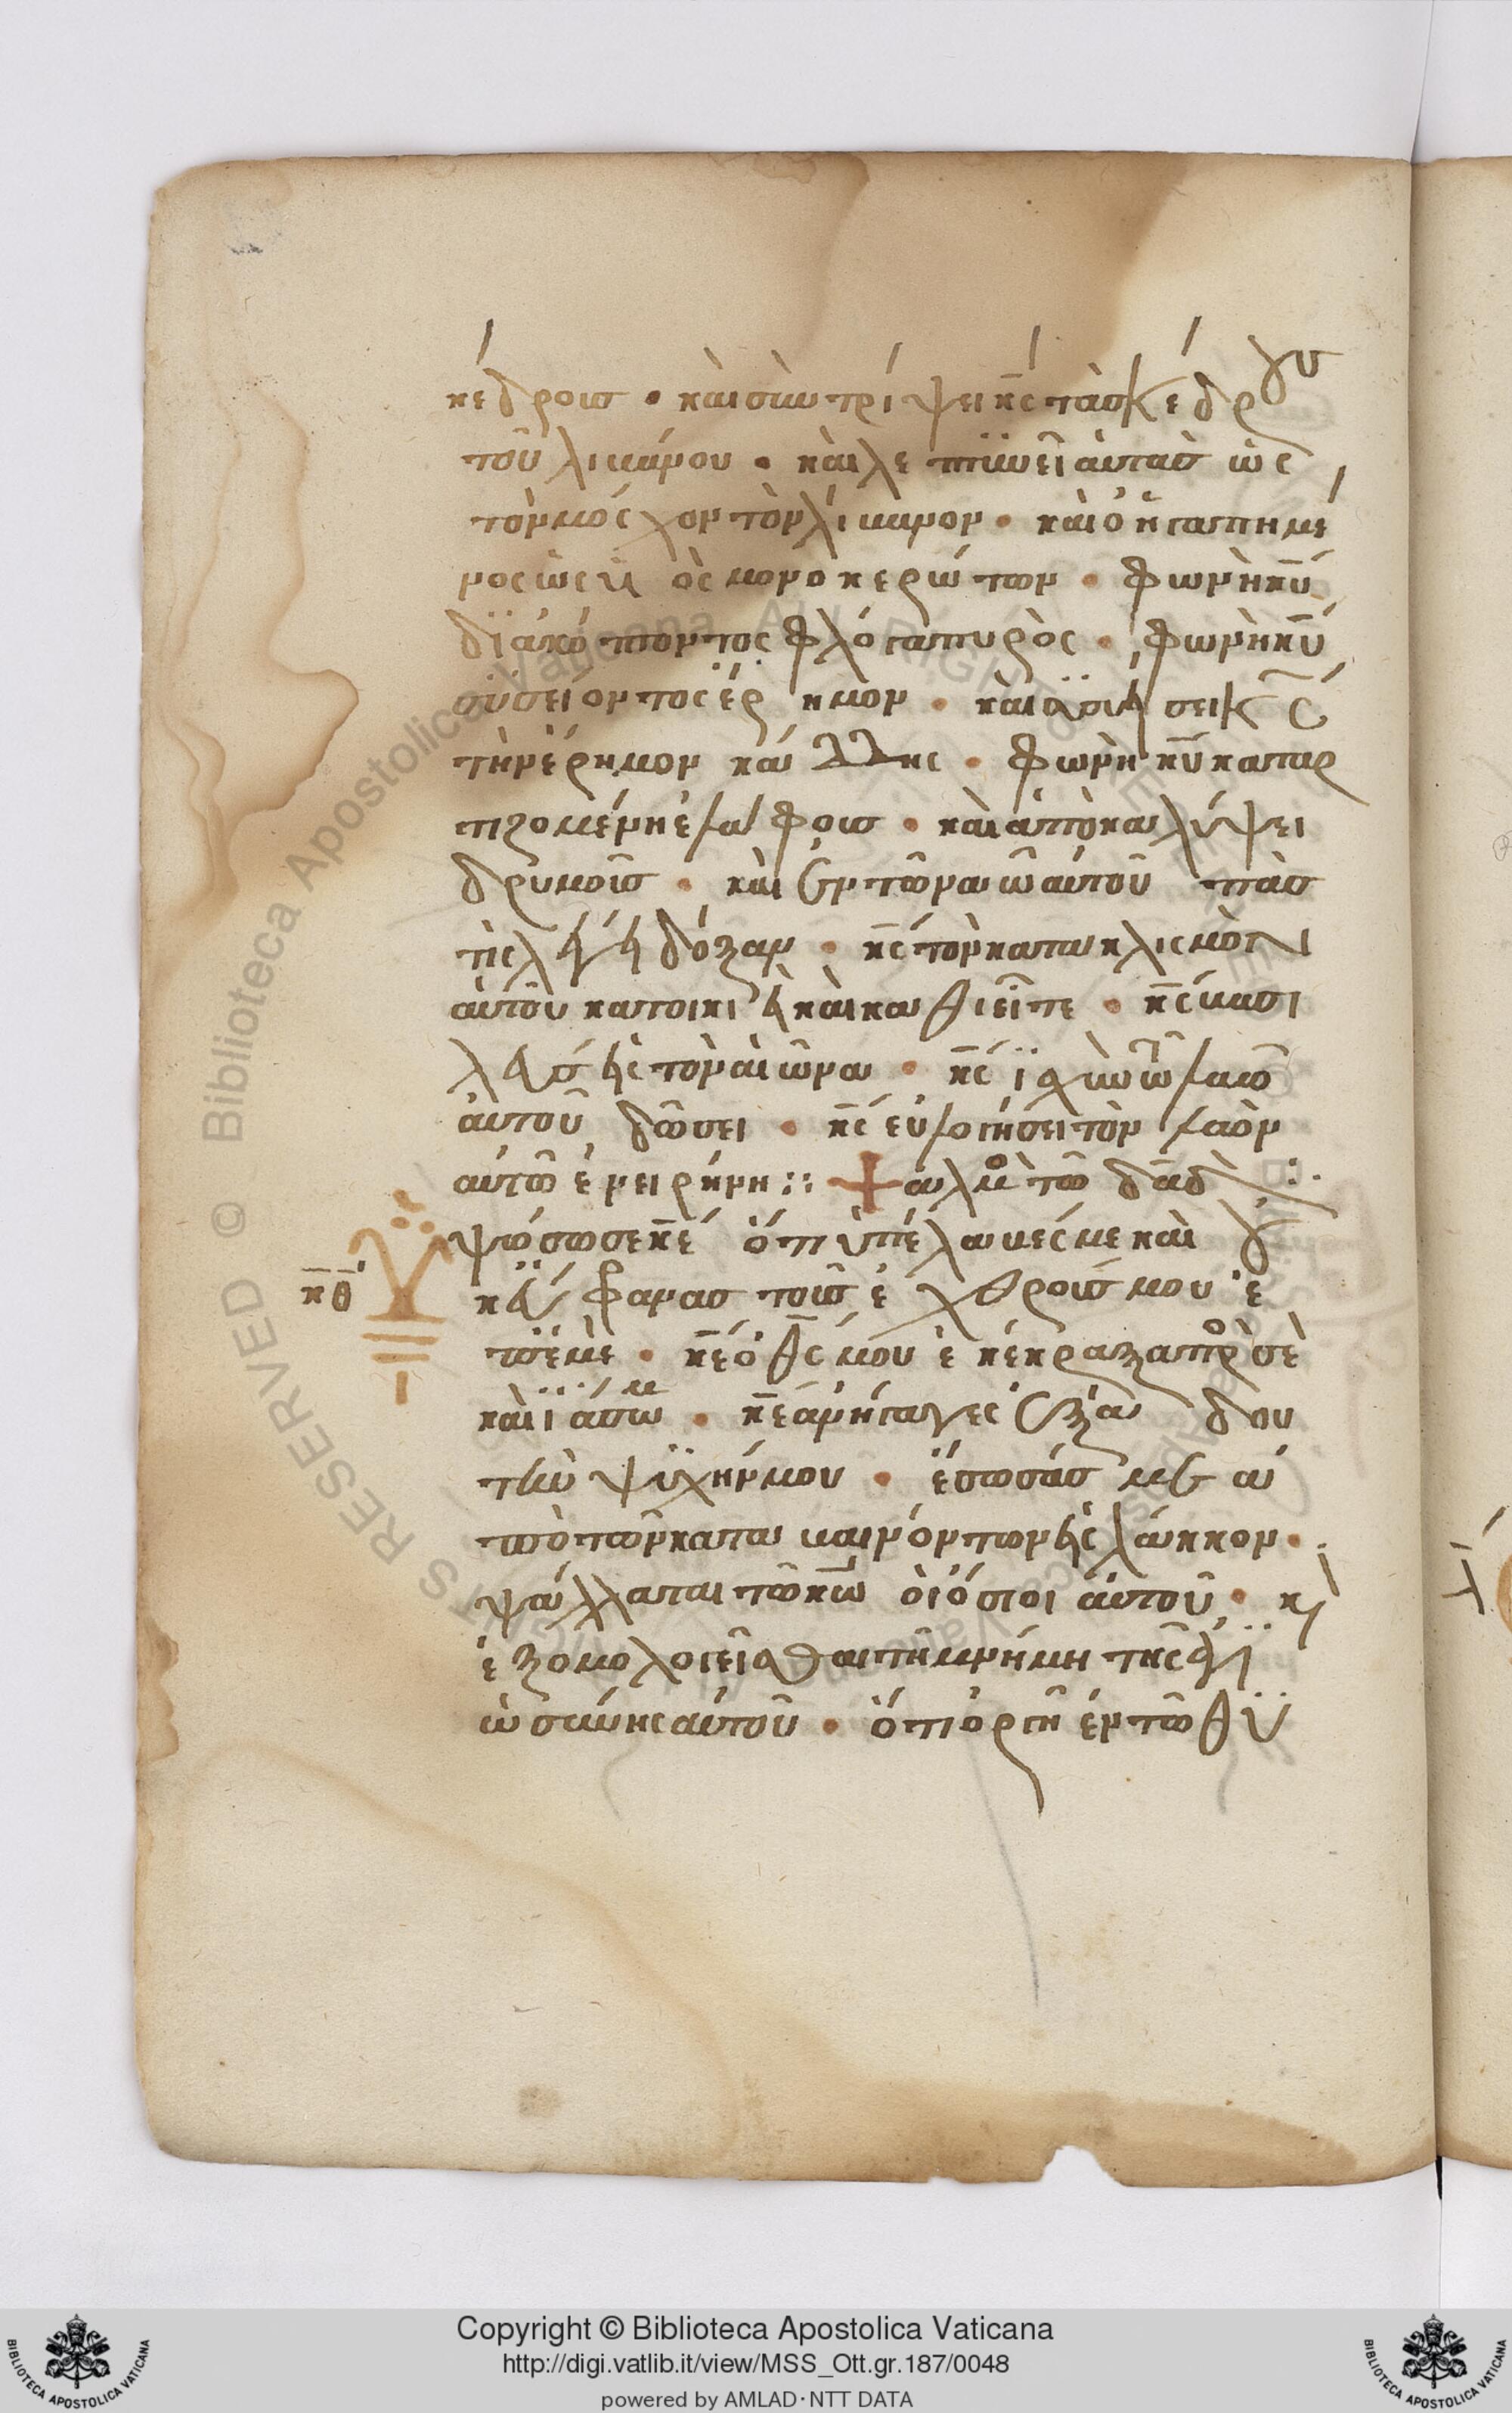 κέδροις · καὶ σὺντρίψει κ̅ς τὰσ κέδρους
τοῦ λιβάνου · καὶ λεπτϋνεῖ ἀυτὰσ ὡς
τὸν μόσχον τὸν λίβανον · καὶ ὁ ἠγαπημέ
νος ὡς υἱὸς μονοκερώτων · Φωνὴ κ̅υ
δϊακόπτοντος φλόγα πυρὸς · Φωνὴ κ̅υ
σϋσείοντος ἔρημον · καὶ σϋσείσει κ̅ς
τὴν ἔρημον κάδδης · Φωνὴ κ̅υ καταρ
τιζομένη ἐλάφοις · καὶ ἀποκαλύψει
δρυμοῖς · καὶ ἐν τῶ ναῶ ἀυτοῦ πὰσ
τὶς λέγει δόξαν · κ̅ς τὸν κατακλισμὸν
ἀυτοῦ κατοικιεῖ καὶ καθιεῖτε · κ̅ς βασι
λεὺσ εἰς τὸν αἰῶνα · κ̅ς ϊσχὺν τῶ λαῶ
ἀυτοῦ δῶσει · κ̅ς εὐλογήσει τὸν λαὸν
αὐτῶ ἐν ειρήνη :: + αλμ τῶ δᾱδ :·
Ὑψόσω σε κ̅ε ὅτι ὑπέλαβές με καὶ οὐ
κ εὔφρανας τοὺσ ἐχθρούς μου ἐ
π' ἐμὲ · κ̅ε ὁ θ̅ς μου ἐκέκραξα πρὸσ σὲ
καὶ ϊάσω με · κ̅ε ἀνήγαγες ἐξ ἅδου
τὴν ψϋχήν μου · ἔσωσάσ με ἀ
πὸ τῶν καταβαινόντων εἰς λάκκον ·
ψάλλαται τῶ κ̅ω ὁι όσιοι ἀυτοῦ · κὶ
ἐξομολογεῖσθαι τῆ μνήμη τῆς ἁγϊ
ωσύνης αὐτοῦ · ὅτι ὀργὴ ἐν τῶ θϋ
κ̅θ̅
Copyright © Biblioteca Apostolica Vaticana
http://digi.vatlib.it/view/MSS_Ott.gr.187/0048
powered by AMLAD·NTT DATA
BIBLIOTECA APOSTOLICA VATICANA
BIBLIOTECA APOSTOLICA VATICANA